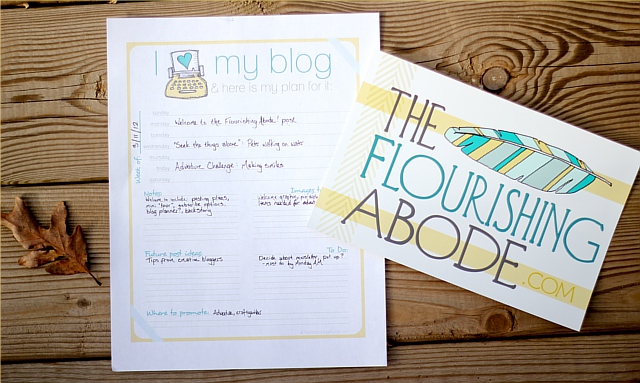 I my blog
& here is my plan for it:
Week of: 3/11/12
Welcome to the Flourishing Abode! post
"Seek the things above": Peter walking on water
Adventure Challenge: Making smiles
Notes:
Welcome to include: posting plans,
mini "tour", subscribe options,
blog planner, back story
Images to
welcome graphic,
needed for
Future post ideas:
Tips from creative bloggers
To Do:
Decide about newsletter, put up?
- next to by Monday AM
Where to promote:
THE
FLOURISHING
ABODE
.COM